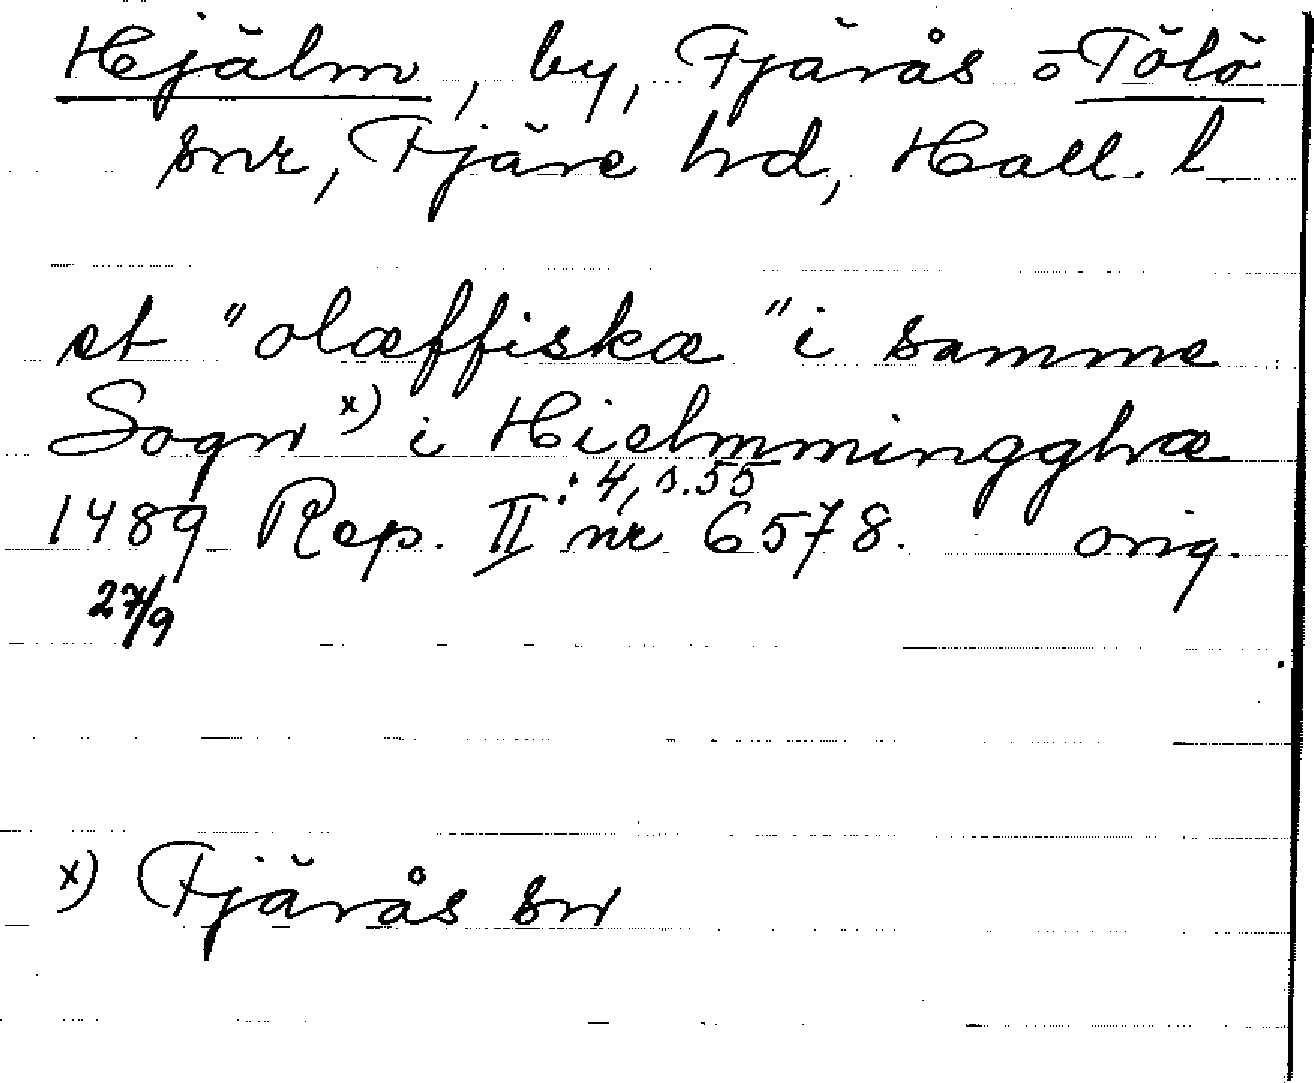 Hjälm, by, Fjärås o Tölö
snr, Fjäre hd, Hall. l
et "olæffiskæ" i samme
Sogn x) i Hielmmingghræ
1489 Rep. II : 4, s. 55 nr 6578. orig.
27/9
x) Fjärås sn